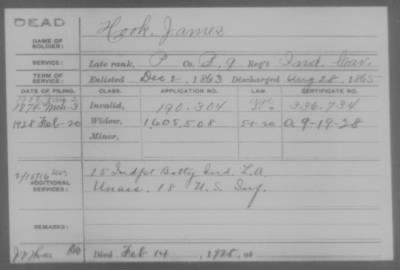 DEAD
NAME OF SOLDIER: Hook, James
SERVICE: Late rank, P Co. B, 9 Reg't Ind. Cav.
TERM OF SERVICE: Enlisted Dec 2, 1863 Discharged Aug 28, 1865
DATE OF FILING. CLASS. APPLICATION NO. LAW. CERTIFICATE NO.
1874 Invalid, 190.304 336.734
1928 Feb-20 Widow, 1,605,508 A 9-19-28
Minor,
ADDITIONAL SERVICES: 15 Indpt Batty Ind. L.A.
Unass. 18 U.S. Inf.
REMARKS:
Died Feb 14, 1928, at